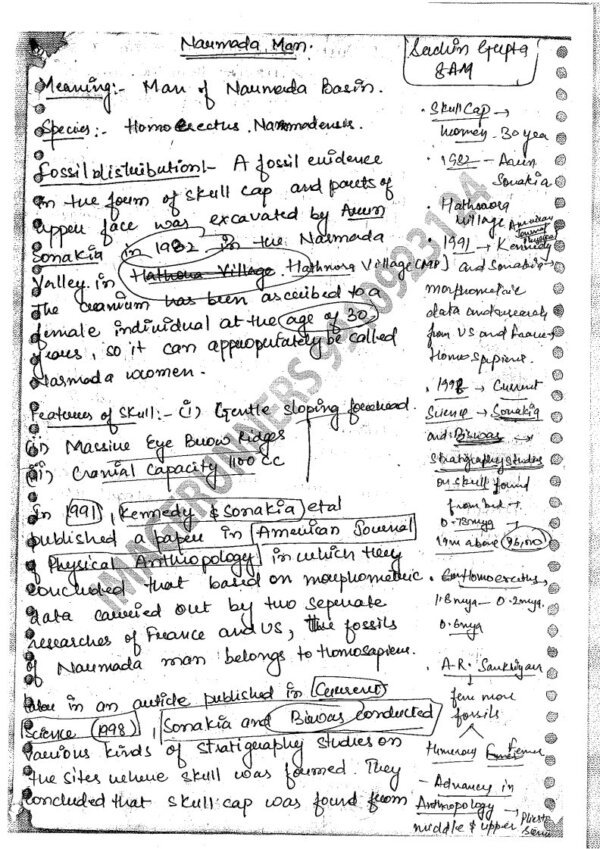 Narmada Man.
Sachin Gupta
8AM
Meaning:- Man of Narmada Basin.
Species:- Homo Erectus Narmadensis.
Fossil distribution:- A fossil evidence
in the form of skull cap and parts of
upper face was excavated by Arun
Sonakia in 1982 in the Narmada
Valley in Hathora Village Hathnora Village (MP)
The cranium has been ascribed to a
female individual at the age of 30
years, so it can appropriately be called
Narmada women.
Features of Skull:- (i) Gentle sloping forehead
(ii) Massive Eye Brow Ridges
(iii) Cranial Capacity 1100 CC
In 1991, Kennedy & Sonakia etal
published a paper in American Journal
of Physical Anthropology in which they
concluded that based on morphometric
data carried out by two seperate
researches of France and US, the fossils
of Narmada man belongs to Homosapiens.
Later in an article published in Current
Science (1998), Sonakia and Biswas conducted
various kinds of stratigraphy studies on
the sites where skull was formed. They
concluded that skull cap was found from
• Skull Cap →
women - 30 year
• 1982 - Arun
Sonakia
• Hathnora
village
American
Journal
Physical
• 1991 → Kennedy
and Sonakia
morphometric
data and research
from US and France
Homosapiens.
• 1998 → Current
Science → Sonakia
and Biswas →
stratigraphy studies
on skull found
from bed →
0.73mya →
19m above 96,000
Homo erectus,
1.8mya - 0.2mya.
0.6mya
• A.R. Sankhyan
few more
fossils
Humerus Femur
- Advances in
Anthropology →
middle & upper
IMAGERUNNERS